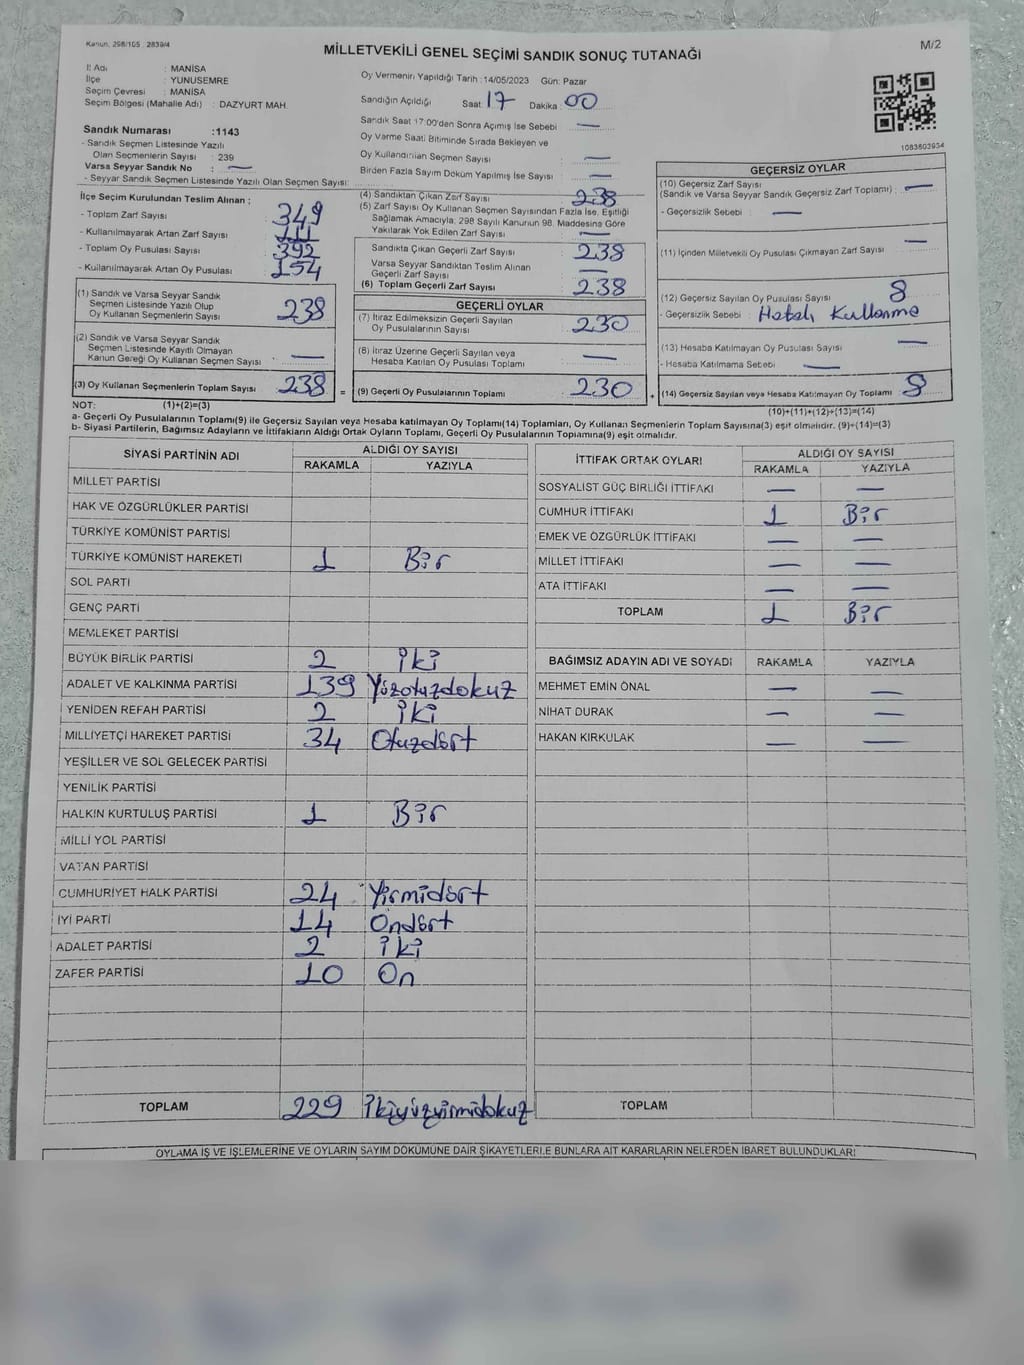 Kanun, 298/105 2839/4
MİLLETVEKİLİ GENEL SEÇİMİ SANDIK SONUÇ TUTANAĞI
M/2
İl Adı : MANİSA
İlçe : YUNUSEMRE
Seçim Çevresi : MANİSA
Seçim Bölgesi (Mahalle Adı) : DAZYURT MAH.
Sandık Numarası :1143
- Sandık Seçmen Listesinde Yazılı
Olan Seçmenlerin Sayısı : 239
Varsa Seyyar Sandık No : —
- Seyyar Sandık Seçmen Listesinde Yazılı Olan Seçmen Sayısı:
Oy Vermenin Yapıldığı Tarih :14/05/2023 Gün: Pazar
Sandığın Açıldığı Saat: 17 Dakika: 00
Sandık Saat 17:00'den Sonra Açılmış İse Sebebi —
Oy Verme Saati Bitiminde Sırada Bekleyen ve
Oy Kullandırılan Seçmen Sayısı —
Birden Fazla Sayım Döküm Yapılmış İse Sayısı —
1083603934
İlçe Seçim Kurulundan Teslim Alınan ;
- Toplam Zarf Sayısı 349
- Kullanılmayarak Artan Zarf Sayısı 111
- Toplam Oy Pusulası Sayısı 392
- Kullanılmayarak Artan Oy Pusulası 154
(1) Sandık ve Varsa Seyyar Sandık
Seçmen Listesinde Yazılı Olup
Oy Kullanan Seçmenlerin Sayısı 238
(2) Sandık ve Varsa Seyyar Sandık
Seçmen Listesinde Kayıtlı Olmayan
Kanun Gereği Oy Kullanan Seçmen Sayısı —
(3) Oy Kullanan Seçmenlerin Toplam Sayısı 238 =
(4) Sandıktan Çıkan Zarf Sayısı 238
(5) Zarf Sayısı Oy Kullanan Seçmen Sayısından Fazla İse, Eşitliği
Sağlamak Amacıyla, 298 Sayılı Kanunun 98. Maddesine Göre
Yakılarak Yok Edilen Zarf Sayısı: —
Sandıkta Çıkan Geçerli Zarf Sayısı 238
Varsa Seyyar Sandıktan Teslim Alınan
Geçerli Zarf Sayısı —
(6) Toplam Geçerli Zarf Sayısı 238
GEÇERLİ OYLAR
(7) İtiraz Edilmeksizin Geçerli Sayılan
Oy Pusulalarının Sayısı 230
(8) İtiraz Üzerine Geçerli Sayılan veya
Hesaba Katılan Oy Pusulası Toplamı —
(9) Geçerli Oy Pusulalarının Toplamı 230 +
GEÇERSİZ OYLAR
(10) Geçersiz Zarf Sayısı
(Sandık ve Varsa Seyyar Sandık Geçersiz Zarf Toplamı) : —
- Geçersizlik Sebebi : —
(11) İçinden Milletvekili Oy Pusulası Çıkmayan Zarf Sayısı —
(12) Geçersiz Sayılan Oy Pusulası Sayısı 8
- Geçersizlik Sebebi : Hatalı Kullanma
(13) Hesaba Katılmayan Oy Pusulası Sayısı —
- Hesaba Katılmama Sebebi —
(14) Geçersiz Sayılan veya Hesaba Katılmayan Oy Toplamı 8
NOT: (1)+(2)=(3)
(10)+(11)+(12)+(13)=(14)
a- Geçerli Oy Pusulalarının Toplamı(9) ile Geçersiz Sayılan veya Hesaba katılmayan Oy Toplamı(14) Toplamları, Oy Kullanan Seçmenlerin Toplam Sayısına(3) eşit olmalıdır. (9)+(14)=(3)
b- Siyasi Partilerin, Bağımsız Adayların ve İttifakların Aldığı Ortak Oyların Toplamı, Geçerli Oy Pusulalarının Toplamına(9) eşit olmalıdır.
SİYASİ PARTİNİN ADI ALDIĞI OY SAYISI
RAKAMLA YAZIYLA
MİLLET PARTİSİ
HAK VE ÖZGÜRLÜKLER PARTİSİ
TÜRKİYE KOMÜNİST PARTİSİ
TÜRKİYE KOMÜNİST HAREKETİ 1 Bir
SOL PARTİ
GENÇ PARTİ
MEMLEKET PARTİSİ
BÜYÜK BİRLİK PARTİSİ 2 iki
ADALET VE KALKINMA PARTİSİ 139 Yüzotuzdokuz
YENİDEN REFAH PARTİSİ 2 iki
MİLLİYETÇİ HAREKET PARTİSİ 34 Otuzdört
YEŞİLLER VE SOL GELECEK PARTİSİ
YENİLİK PARTİSİ
HALKIN KURTULUŞ PARTİSİ 1 Bir
MİLLİ YOL PARTİSİ
VATAN PARTİSİ
CUMHURİYET HALK PARTİSİ 24 Yirmidört
İYİ PARTİ 14 Ondört
ADALET PARTİSİ 2 iki
ZAFER PARTİSİ 10 On
TOPLAM 229 ikiyüzyirmidokuz
İTTİFAK ORTAK OYLARI ALDIĞI OY SAYISI
RAKAMLA YAZIYLA
SOSYALİST GÜÇ BİRLİĞİ İTTİFAKI — —
CUMHUR İTTİFAKI 1 Bir
EMEK VE ÖZGÜRLÜK İTTİFAKI — —
MİLLET İTTİFAKI — —
ATA İTTİFAKI — —
TOPLAM 1 Bir
BAĞIMSIZ ADAYIN ADI VE SOYADI RAKAMLA YAZIYLA
MEHMET EMİN ÖNAL — —
NİHAT DURAK — —
HAKAN KIRKULAK — —
TOPLAM
OYLAMA İŞ VE İŞLEMLERİNE VE OYLARIN SAYIM DÖKÜMÜNE DAİR ŞİKAYETLERLE BUNLARA AİT KARARLARIN NELERDEN İBARET BULUNDUKLARI